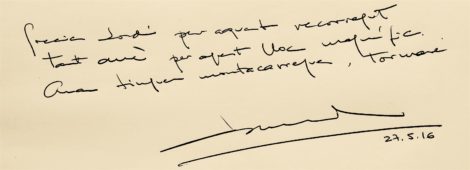 Gracies Jordi per aquest recorregut
tant amè per aquest lloc magnífic.
Quan tingueu montacarregues, tornaré.
27.5.16